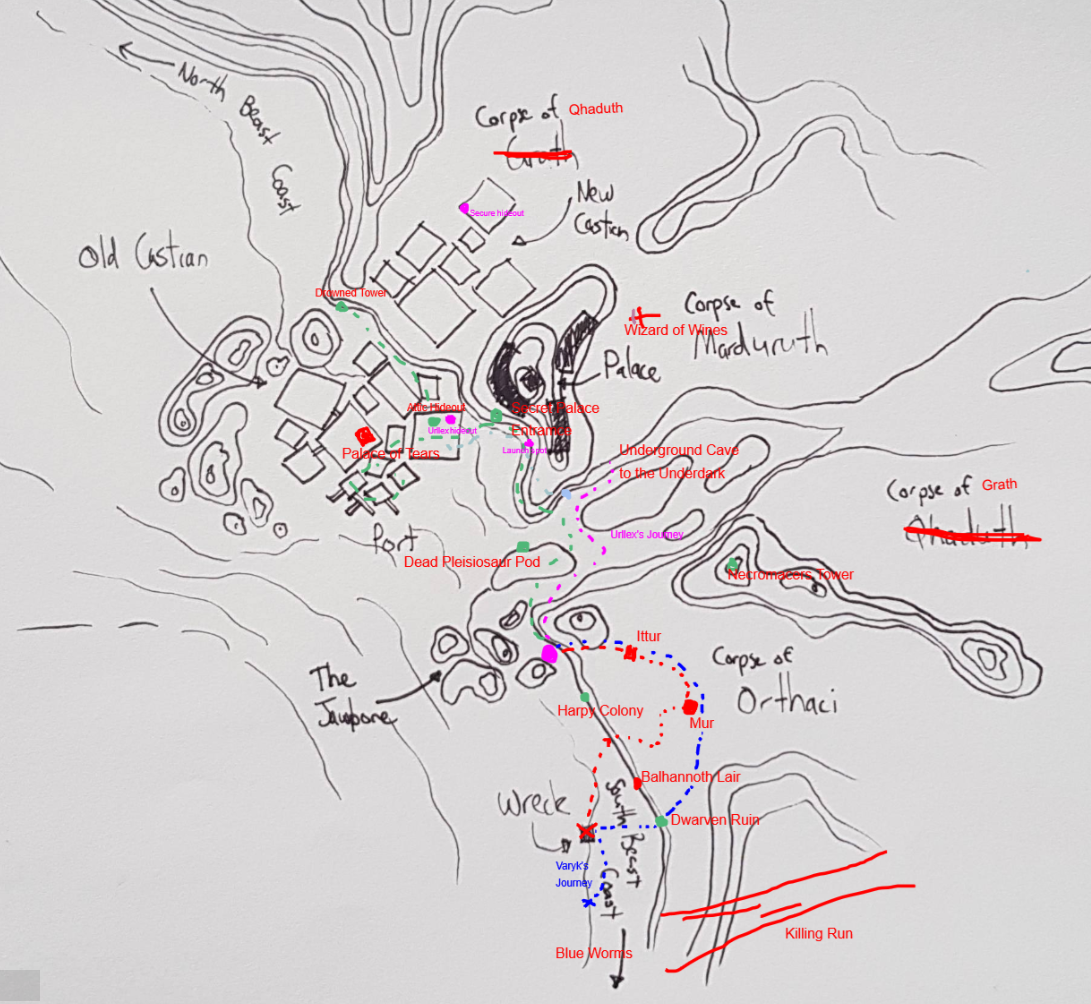 North Beast
Coast
Corpse of Qhaduth
Grath
New
Castian
Secure hideout
Old Castian
Drowned Tower
Corpse of
Marduruth
Wizard of Wines
Palace
Attic Hideout
Urllex hideout
Secret Palace
Entrance
Launch spot
Palace of Tears
Underground Cave
to the Underdark
Corpse of Grath
Qhaduth
Port
Urllex's Journey
Dead Pleisiosaur Pod
Necromacers Tower
Ittur
Corpse of
Orthaci
The
Jawbone
Harpy Colony
Mur
Balhannoth Lair
Wreck
South Beast
Coast
Dwarven Ruin
Varyk's
Journey
Killing Run
Blue Worms